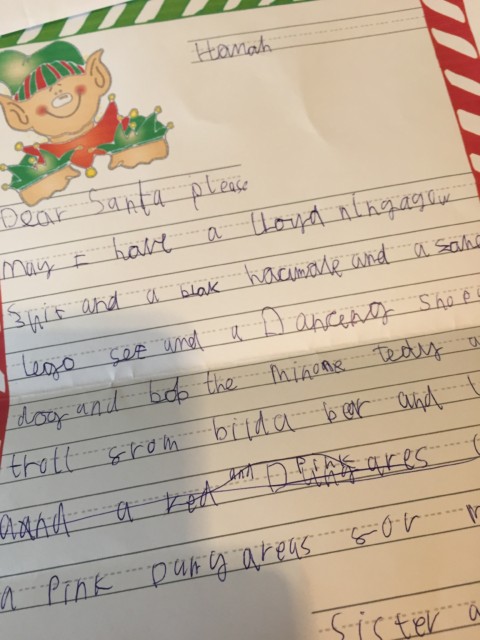 Hanah
Dear Santa please
may I have a Lloyd ningagow
Suit and a blak hacumale and a
lego set and a Danceng
dog and bob the minone tedy
troll from bilda bear and
aand a red and Pink
a Pink dungareas for
Sister